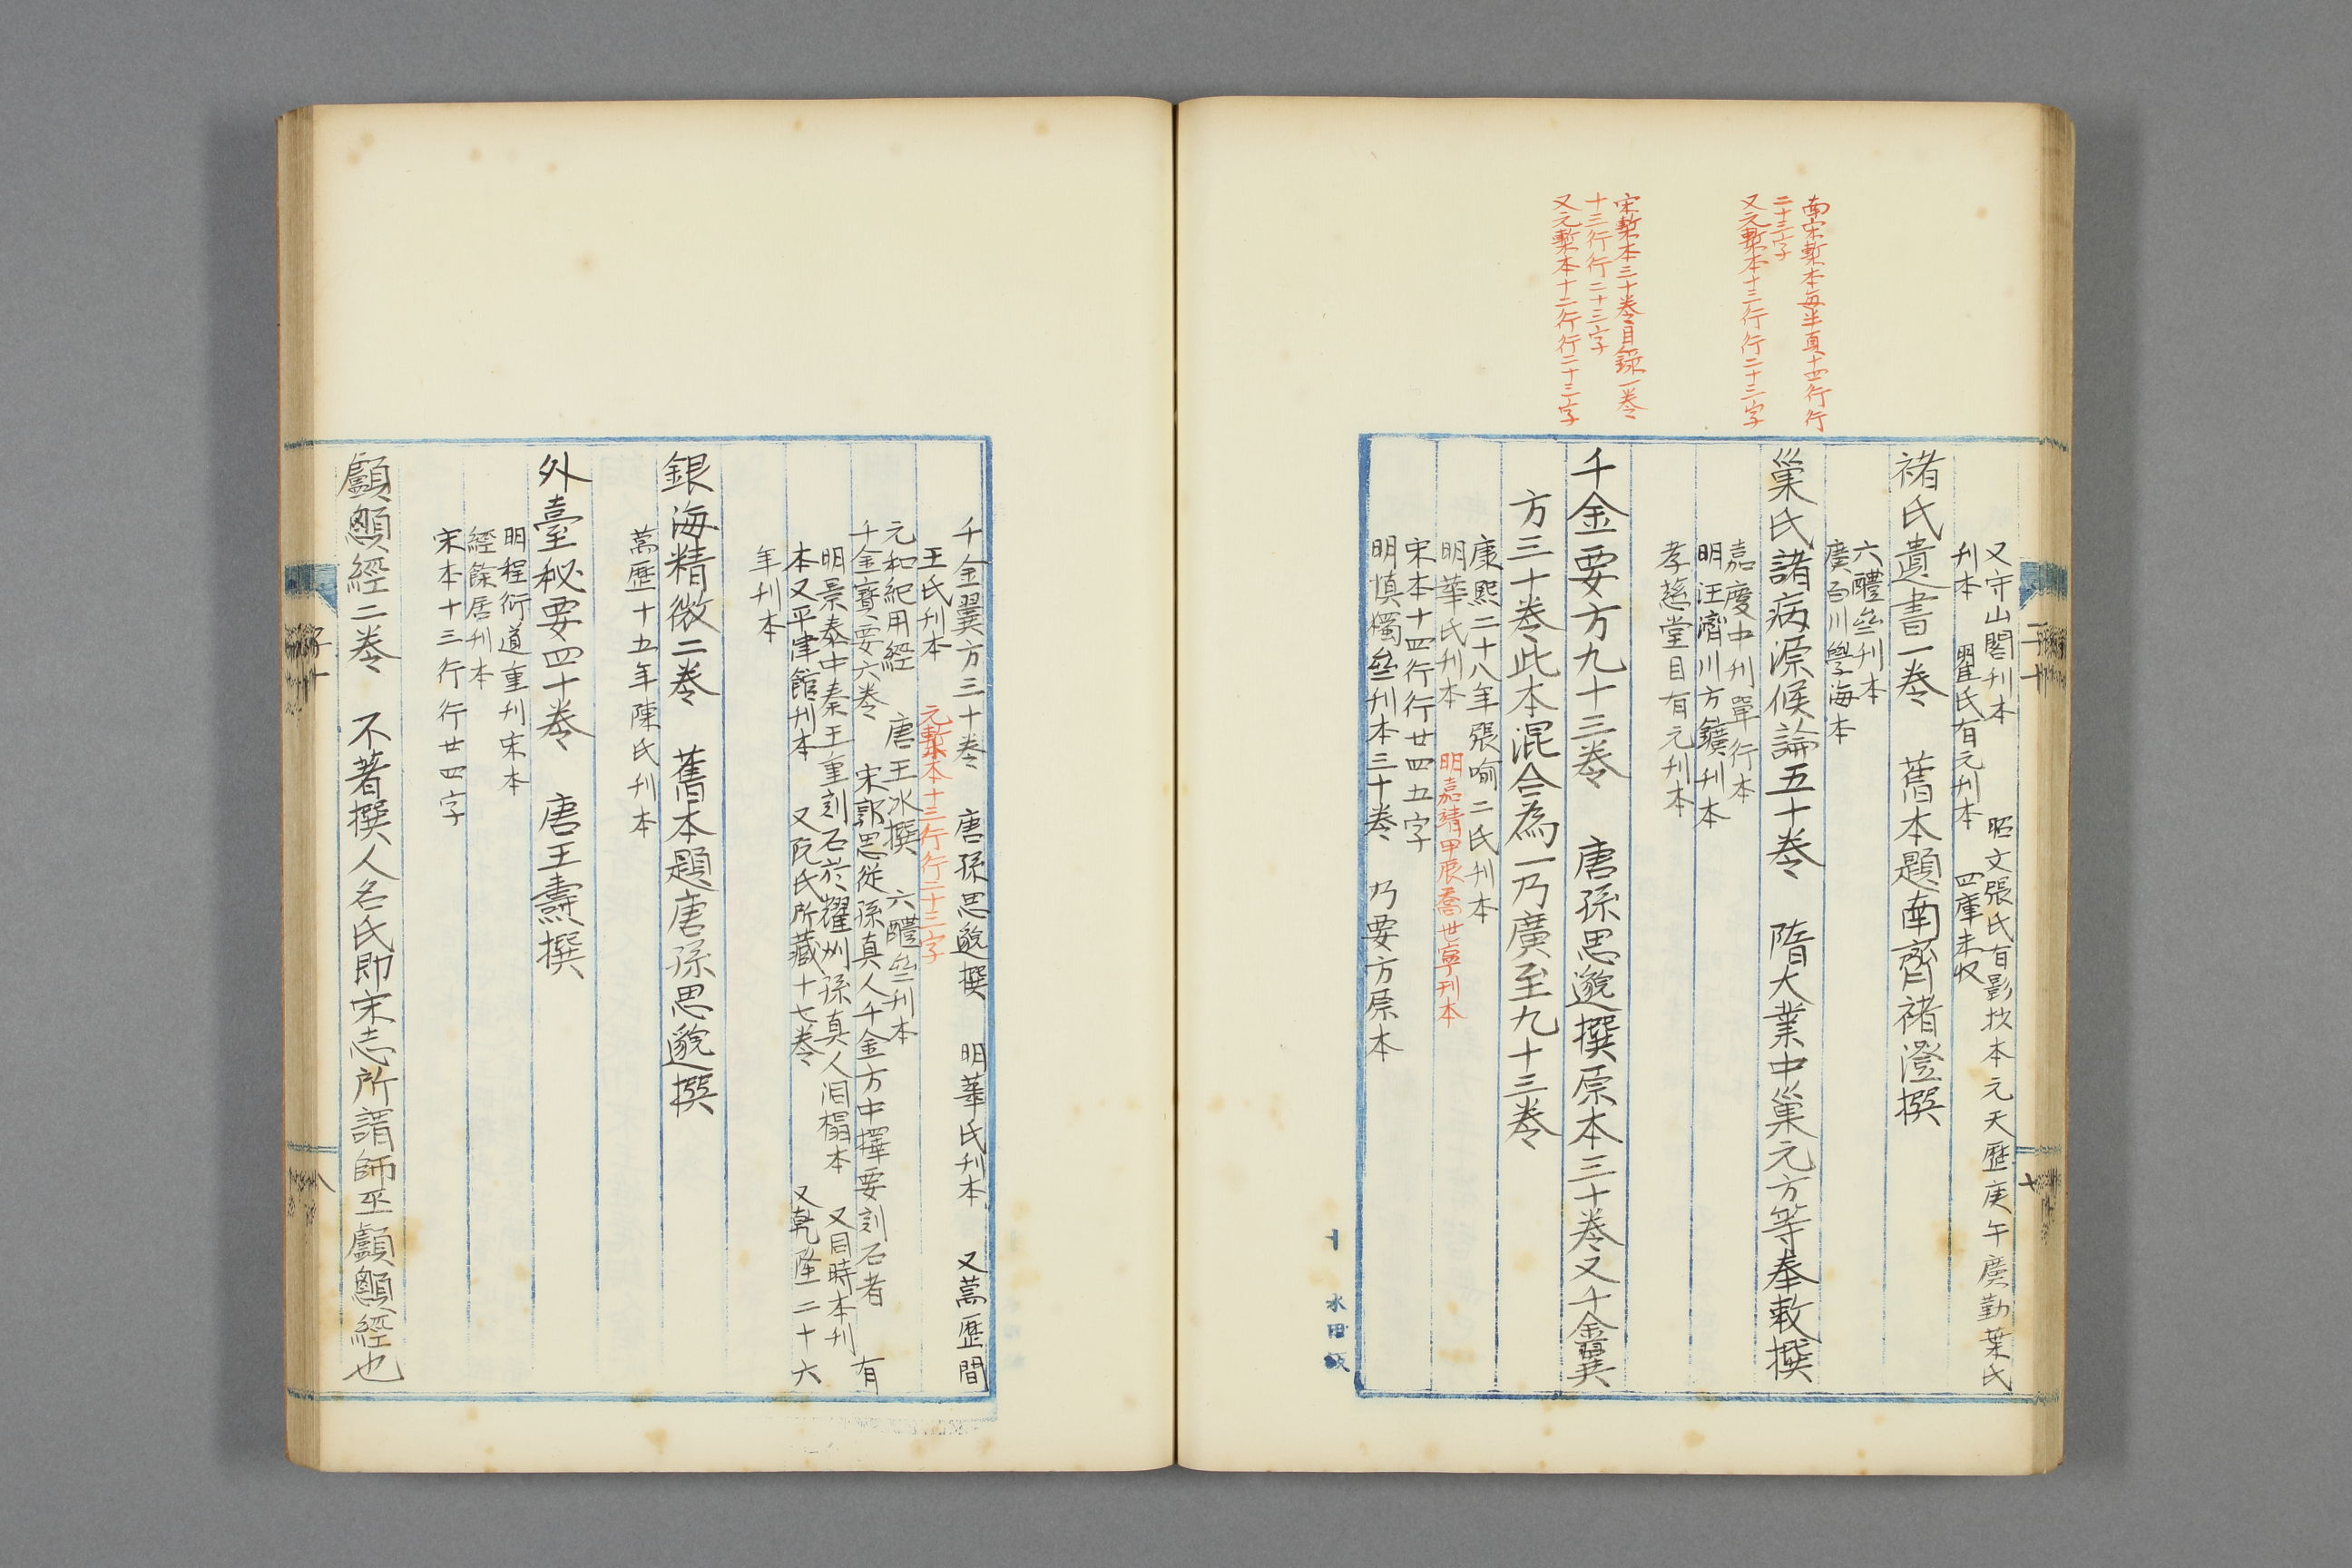 南宋槧本每半頁十四行行
二十三字
又元槧本十三行行二十三字
宋槧本三十卷目錄一卷
十三行行二十三字
又元槧本十二行行二十三字
又守山閣刊本　昭文張氏有影抄本元天歷庚午廣勤葉氏
刊本　瞿氏有元刊本　四庫未收
褚氏遺書一卷　舊本題南齊褚澄撰
六醴齋刊本
廣百川學海本
巢氏諸病源候論五十卷　隋大業中巢元方等奉敕撰
嘉慶中刊單行本
明汪濟川方鑛刊本
孝慈堂目有元刊本
千金要方九十三卷　唐孫思邈撰原本三十卷又千金翼
方三十卷此本混合為一乃廣至九十三卷
康熙二十八年張喻二氏刊本
明華氏刊本　明嘉靖甲辰喬世寧刊本
宋本十四行行廿四五字
明慎獨齋刊本三十卷　乃要方原本
二十
七
千金翼方三十卷　唐孫思邈撰　明華氏刊本　又萬歷間
王氏刊本　元槧本十三行行二十三字
元和紀用經　唐王冰撰　六醴齋刊本
千金寶要六卷　宋郭思從孫真人千金方中擇要刻石者　有
明景泰中秦王重刻石於耀州孫真人洞榻本　又同時本刊
本又平津館刊本　又阮氏所藏十七卷　又乾隆二十六
年刊本
銀海精微二卷　舊本題唐孫思邈撰
萬歷十五年陳氏刊本
外臺秘要四十卷　唐王燾撰
明程衍道重刊宋本
經餘居刊本
宋本十三行行廿四字
顱顖經二卷　不著撰人名氏即宋志所謂師巫顱顖經也
子十
八